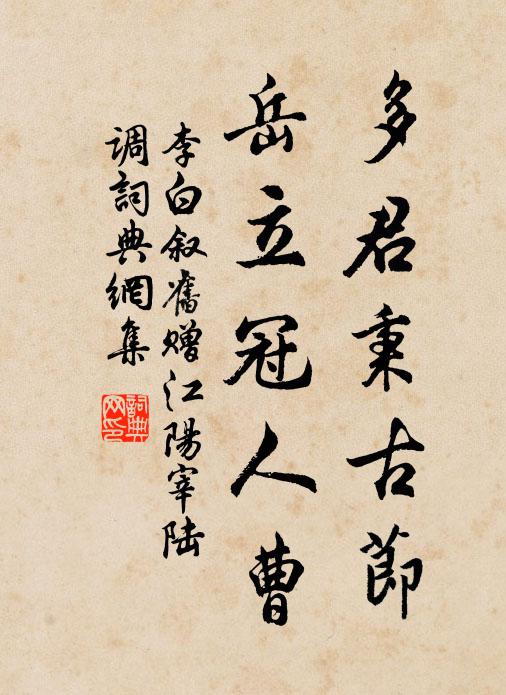 多君秉古節
岳立冠人曹
李白叙舊赠江陽宰陆
调詞典網集
詞典网印